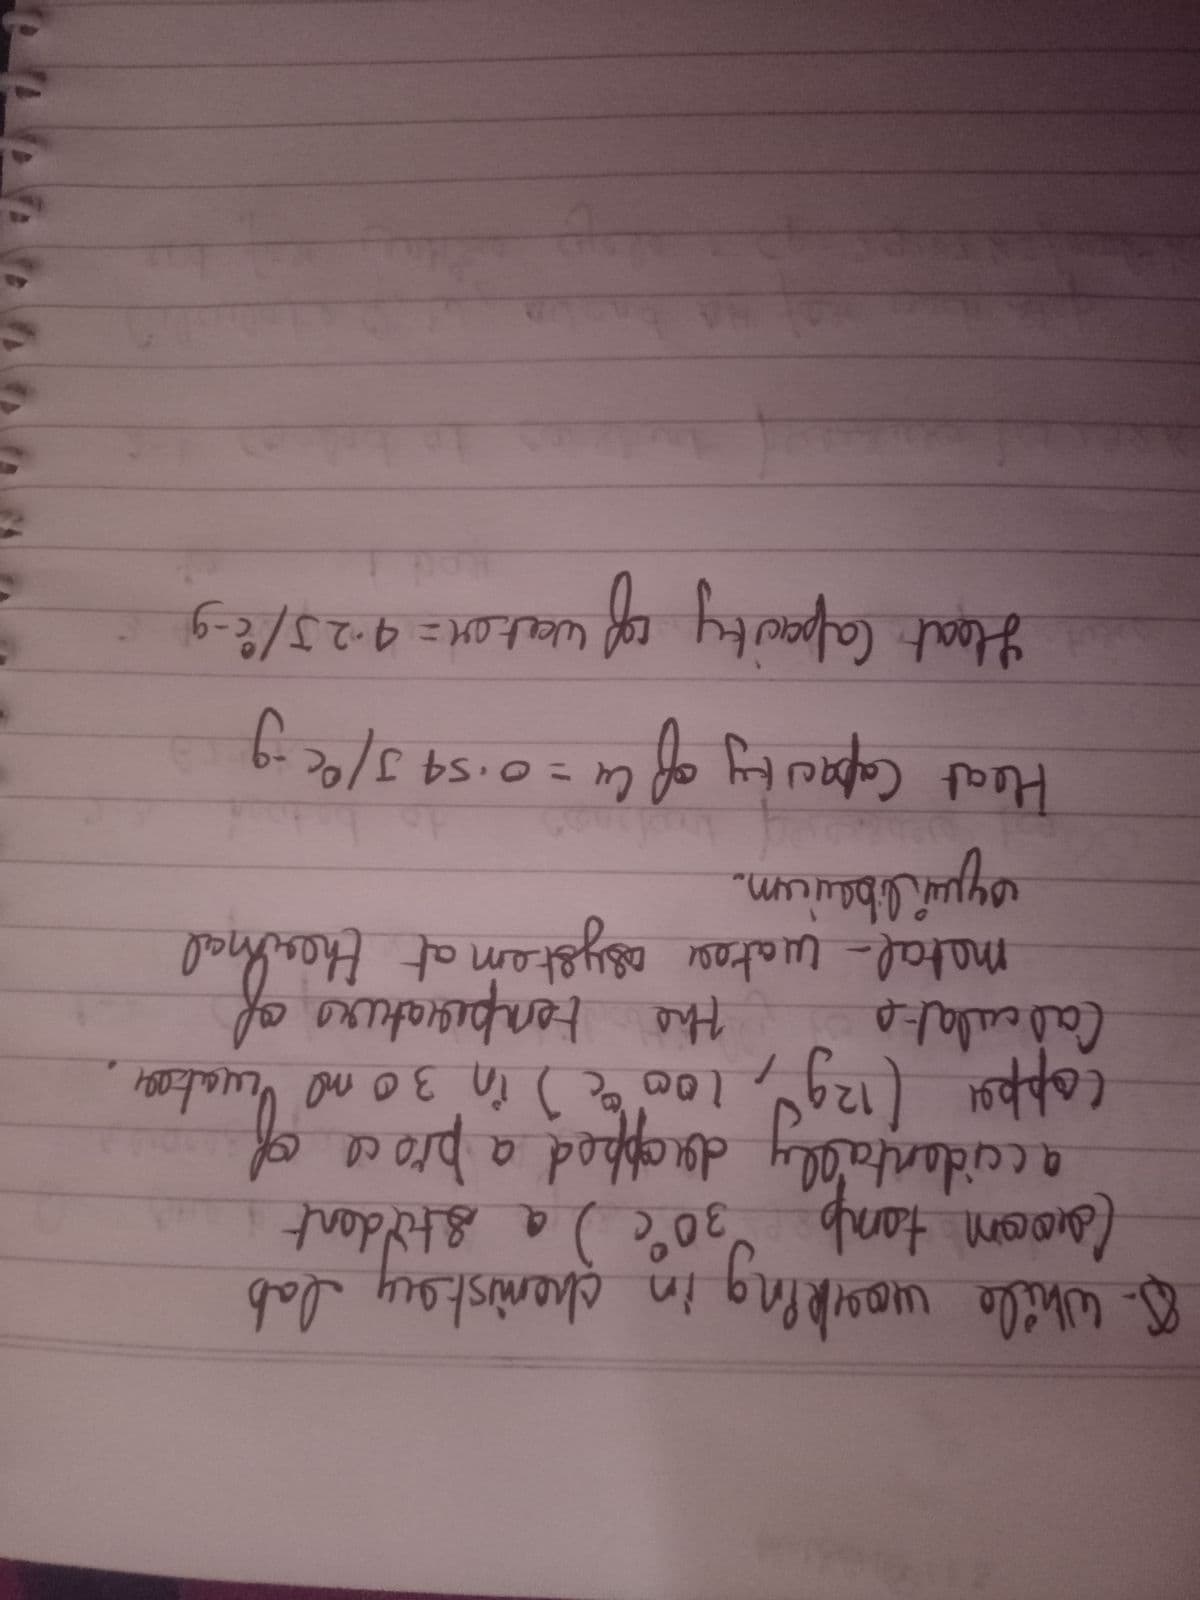 Q- While working in chemistry lab
(room temp 30°C) a student
accidentally dropped a piece of
copper (12g, 100°C) in 30 ml water.
Calculate the temperature of
metal-water system at thermal
equilibrium.
Heat Capacity of Cu = 0.54 J/°C-g
Heat Capacity of water = 4.2 J/°C-g